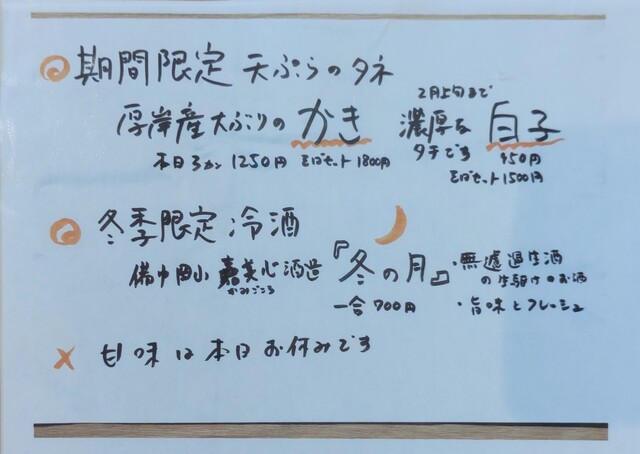 期間限定 天ぷらのタネ
厚岸産大ぶりの かき
本日3カン 1250円 そばセット 1800円
2月上旬まで
濃厚な 白子
タチです 950円
そばセット 1500円
冬季限定 冷酒
備中岡山 嘉美心酒造 『冬の月』
かみごころ
一合 700円
・無濾過生酒
の生駆けのお酒
・旨味とフレーシュ
× 甘味は本日お休みです